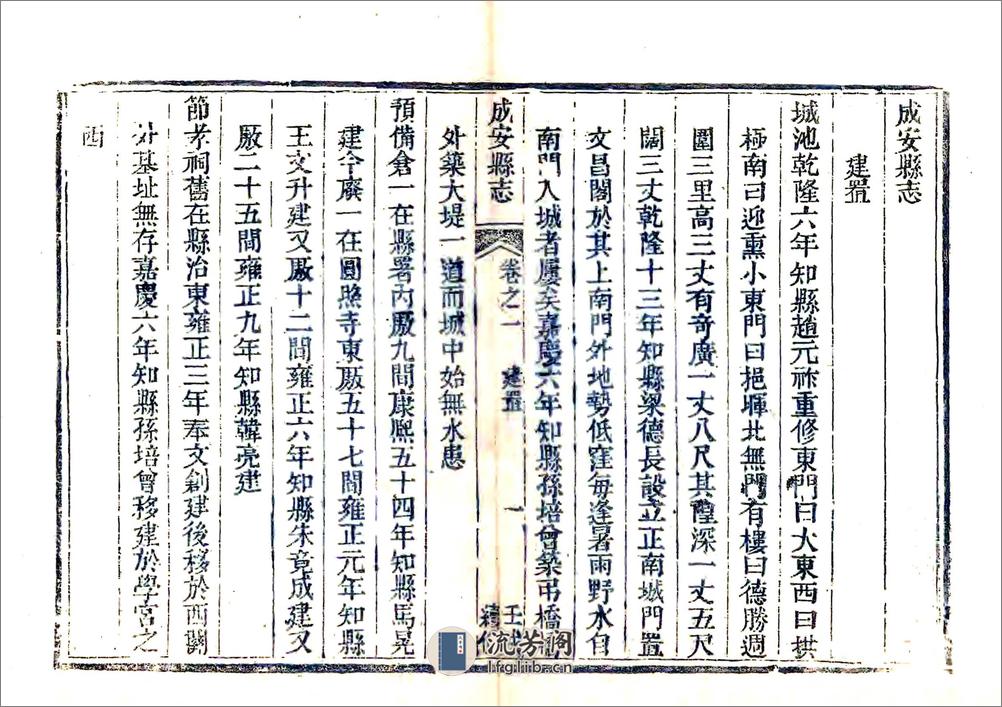 成安縣志
建置
城池乾隆六年知縣趙元祚重修東門曰大東西曰拱
極南曰迎薰小東門曰挹暉北無門有樓曰德勝週
圍三里高三丈有奇廣一丈八尺其隍深一丈五尺
闊三丈乾隆十三年知縣梁德長設立正南城門置
文昌閣於其上南門外地勢低窪每逢暑雨野水自
南門入城者屢矣嘉慶六年知縣孫培曾築弔橋
成安縣志 卷之一 建置 一 壬戌
外築大堤一道而城中始無水患
預備倉一在縣署內厫九間康熙五十四年知縣馬晃
建今廢一在圓照寺東厫五十七間雍正元年知縣
王文升建又厫十二間雍正六年知縣朱竟成建又
厫二十五間雍正九年知縣韓亮建
節孝祠舊在縣治東雍正三年奉文創建後移於西關
外基址無存嘉慶六年知縣孫培曾移建於學宮之
西
流芳閣
lfglib.cn